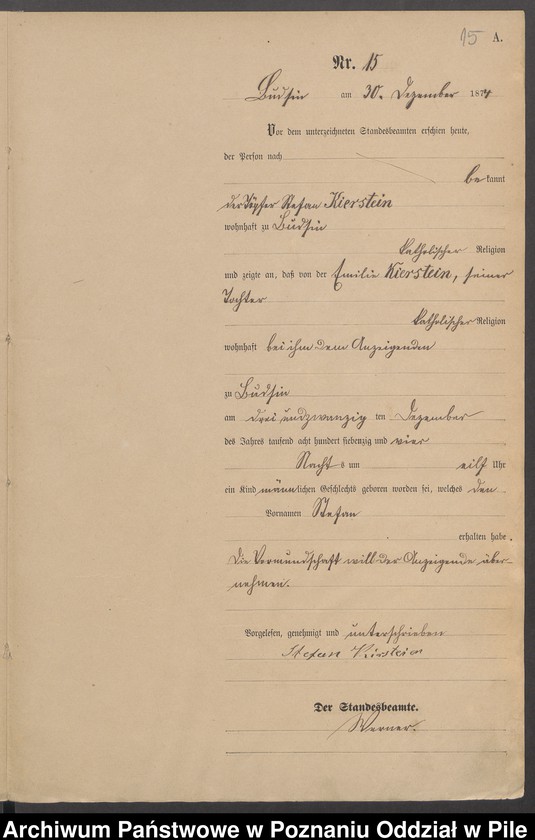 15 A.
Nr. 15
Budsin am 30. Dezember 1874
Vor dem unterzeichneten Standesbeamten erschien heute,
der Person nach
bekannt
der Töpfer Stefan Kierstein
wohnhaft zu Budsin
katholischer Religion
und zeigte an, daß von der Emilie Kierstein, seiner
Tochter
katholischer Religion
wohnhaft bei ihm dem Anzeigenden
zu Budsin
am drei und zwanzig ten Dezember
des Jahres tausend acht hundert siebenzig und vier
Nachts um eilf Uhr
ein Kind männlichen Geschlechts geboren worden sei, welches den
Vornamen Stefan
erhalten habe.
Die Vormundschaft will der Anzeigende über-
nehmen.
Vorgelesen, genehmigt und unterschrieben
Stefan Kirstein
Der Standesbeamte.
Werner.
Archiwum Państwowe w Poznaniu Oddział w Pile